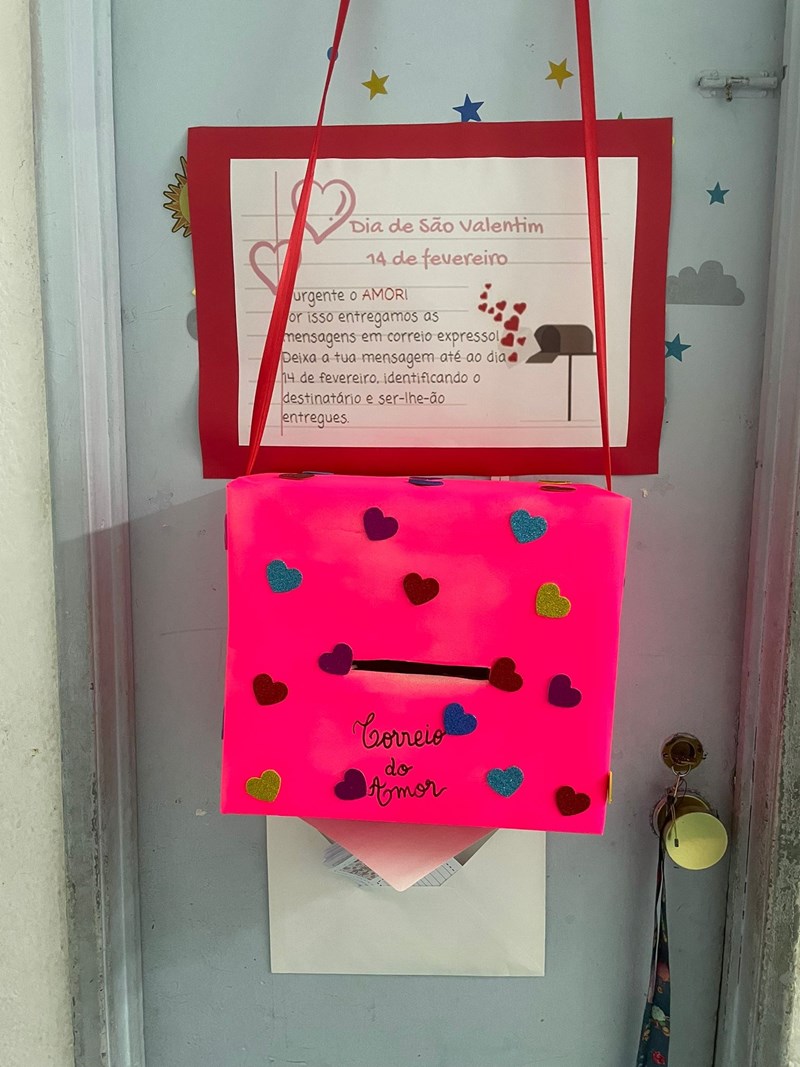 Dia de São Valentim
14 de fevereiro
urgente o AMOR!
or isso entregamos as
mensagens em correio expresso!
Deixa a tua mensagem até ao dia
14 de fevereiro, identificando o
destinatário e ser-lhe-ão
entregues.
Correio
do
Amor